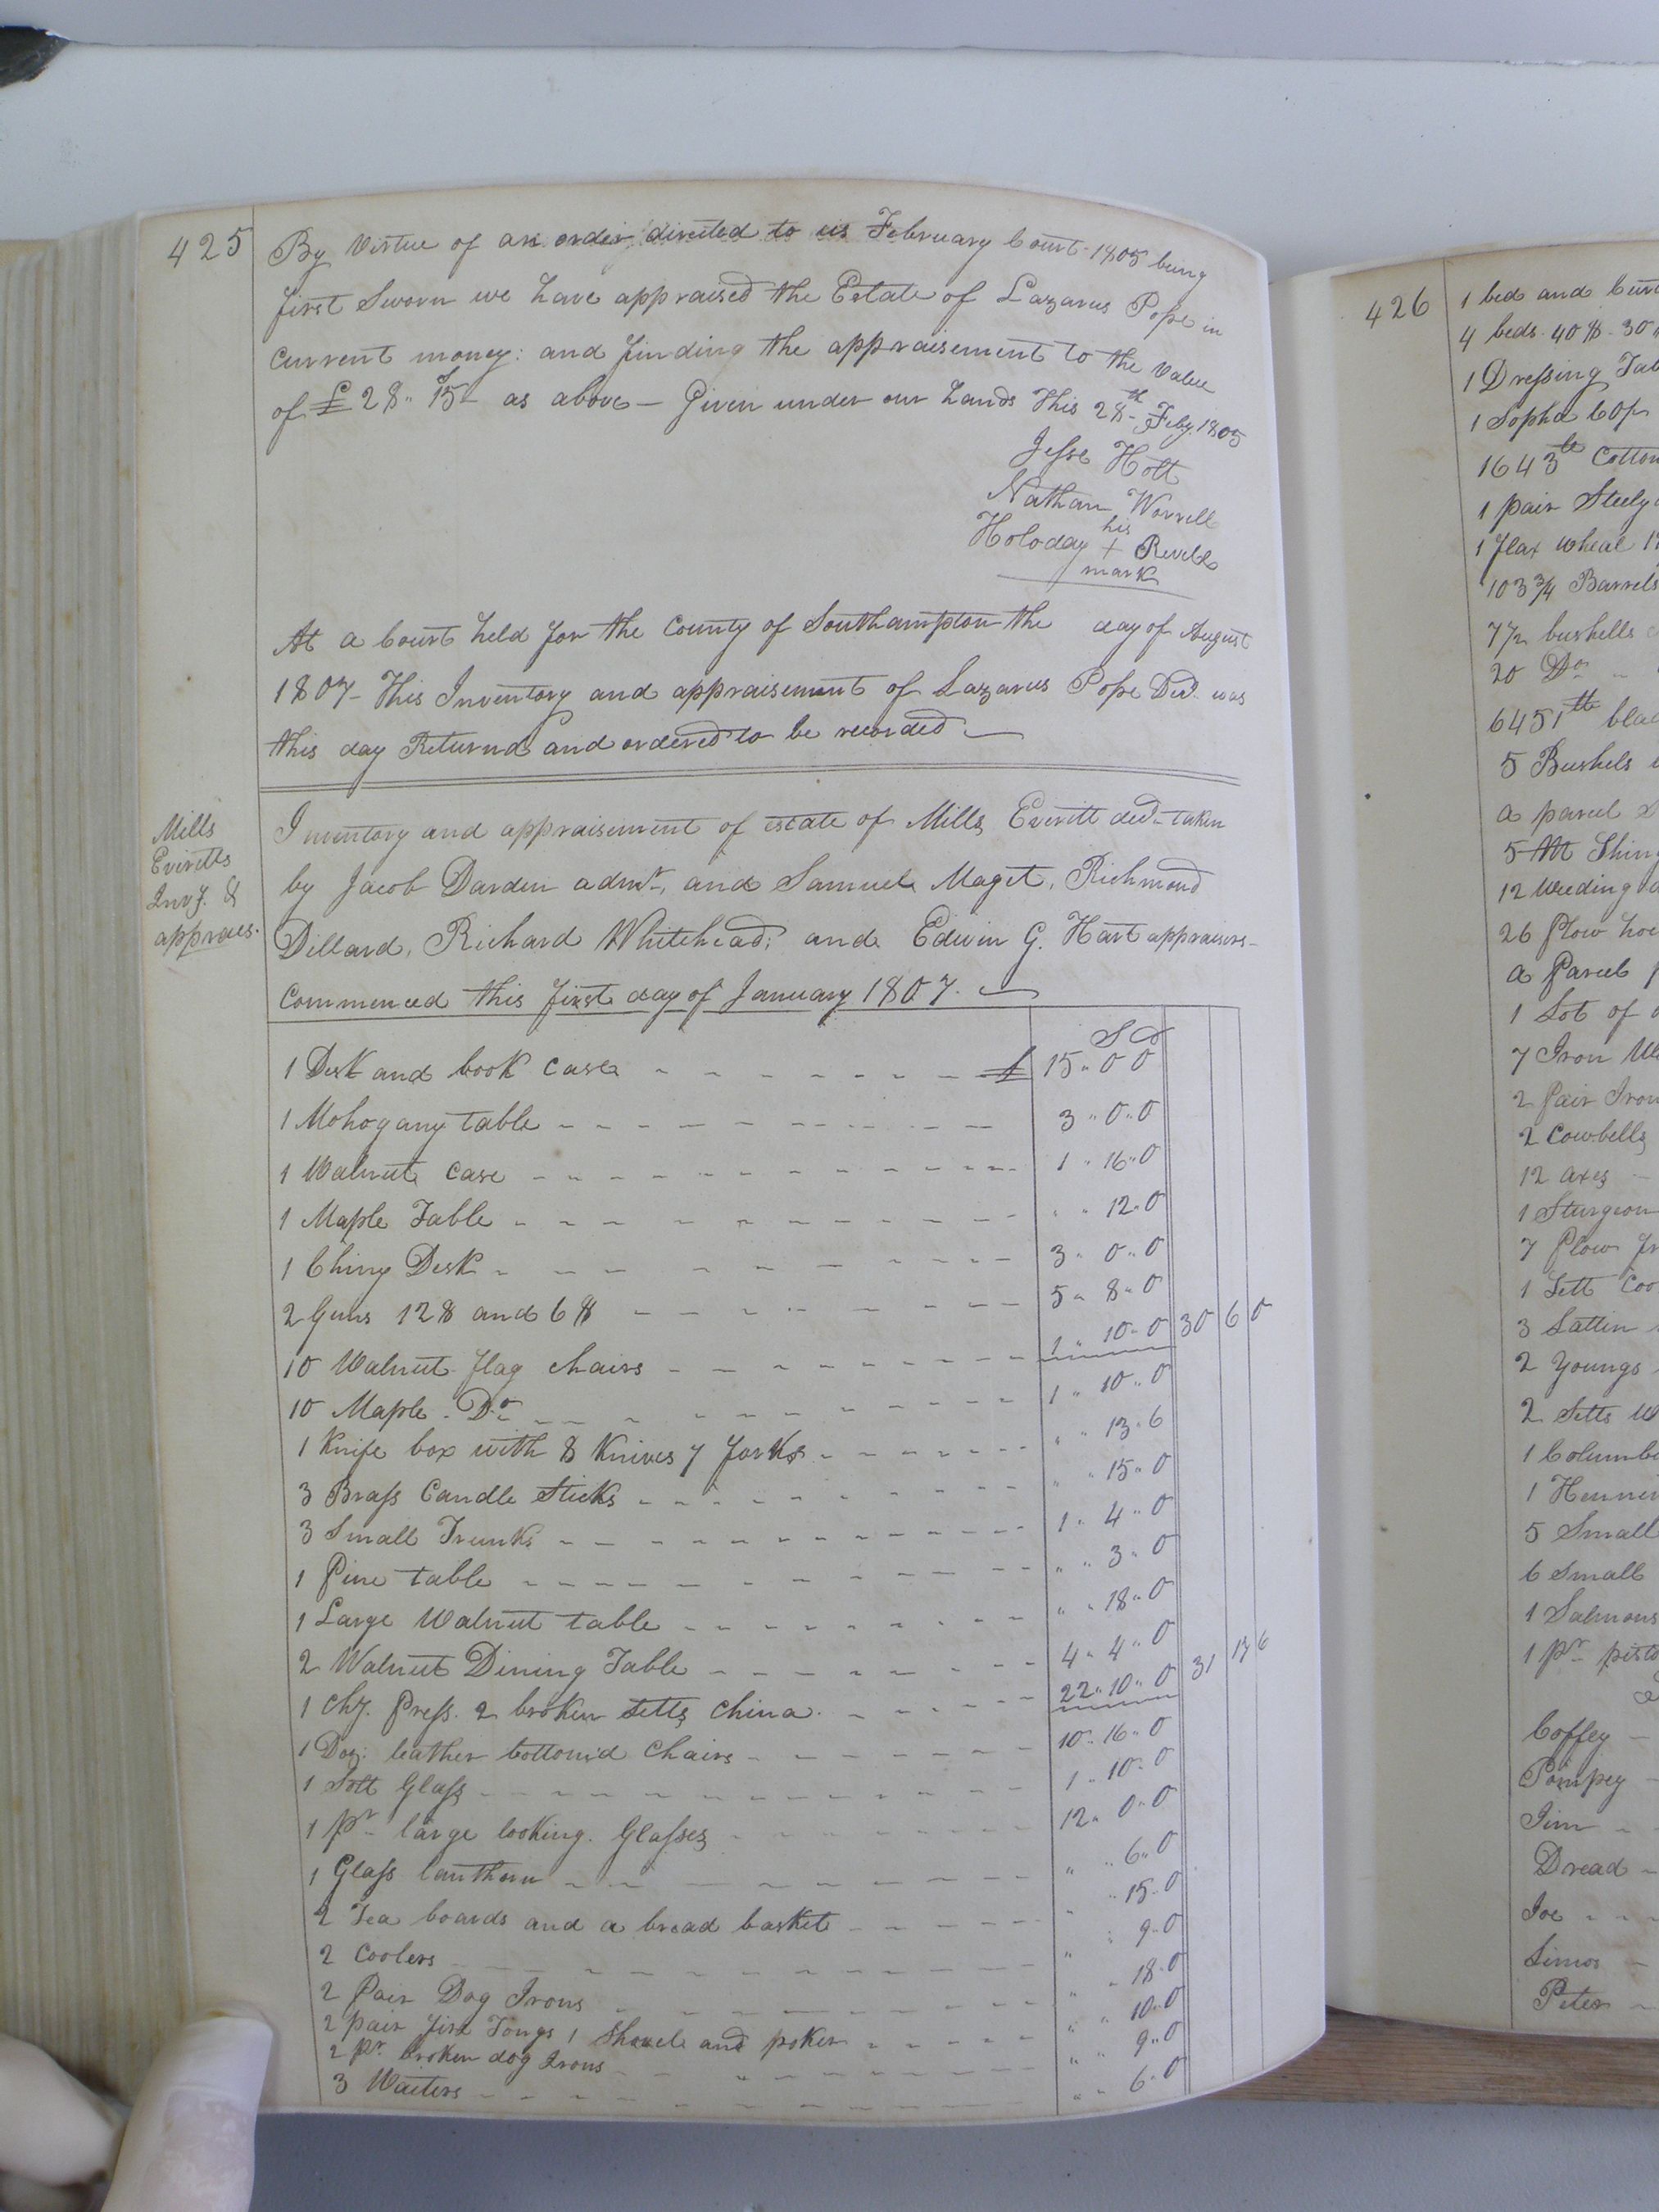 425
By Virtue of an order directed to us February Court 1805 being
first Sworn we have appraised the Estate of Lazarus Pope in
current money: and finding the appraisement to the value
of £ 28 " 15 - as above - Given under our hands this 28th Feby. 1805
Jesse Holt
Nathan Worrell
his
Holoday + Revell
mark
At a Court held for the County of Southampton the day of August
1807 - This Inventory and appraisement of Lazarus Pope Decd. was
this day Returnd and ordered to be recorded -
Mills
Everitts
Invy. &
appraes.
Inventory and appraisement of estate of Mills Everitt decd. taken
by Jacob Darden admr., and Samuel Maget, Richmond
Dillard, Richard Whitehead, and Edwin G. Hart appraisers -
Commenced this first day of January 1807. -
S D
1 Desk and book case - - - £ 15 " 0 0
1 Mohogany table - - - 3 " 0 " 0
1 Walnut case - - - 1 " 16 " 0
1 Maple Table - - - " " 12 " 0
1 Chiny Desk - - - 3 " 0 " 0
2 Guns 12$ and 6$ - - - 5 " 8 " 0
10 Walnut flag chairs - - - 1 " 10 " 0 30 6 0
10 Maple Do - - - 1 " 10 " 0
1 Knife box with 8 Knives 7 forks - - - " " 13 " 6
3 Brass Candle Sticks - - - " " 15 " 0
3 Small Trunks - - - 1 " 4 " 0
1 Pine table - - - " " 3 " 0
1 Large Walnut table - - - " " 18 " 0
2 Walnut Dining Table - - - 4 " 4 " 0
1 Chy. Press. 2 broken setts China - - - 22 " 10 " 0 31 13 6
1 Doz: leather bottomd Chairs - - - 10 " 16 " 0
1 Glass - - - 1 " 10 " 0
1 Pr large looking Glasses - - - 12 " 0 " 0
1 Glass lanthorn - - - " " 6 " 0
2 Tea boards and a bread basket - - - " " 15 " 0
2 Coolers - - - " " 9 " 0
2 Pair Dog Irons - - - " " 18 " 0
2 pair fire Tongs 1 Shovel and poker - - - " " 10 " 0
2 Pr. broken dog Irons - - - " " 9 " 0
3 Waiters - - - " " 6 " 0
426
1 bed and
4 beds 40$ - 30
1 Dressing
1 Sopha 60/
1643 lb Cotton
1 pair
1 flax wheal
103 3/4 Barrels
7 1/2 bushells
20 Do "
6451 lb
5 Bushels
a parcel
5 M
12 Weeding
26 Plow
a Parcel
1 Lot of
7 Iron
2 Pair Iron
2 Cowbells
12 axes -
1 Sturgeon
7 Plow
1 Sett
3 Sattin
2 Youngs
2 Setts
1
1
5 Small
6 Small
1 Salmons
1 Pr
Coffey -
Pompey -
Jim - -
Dread -
Joe - - -
Simos -
Peter -